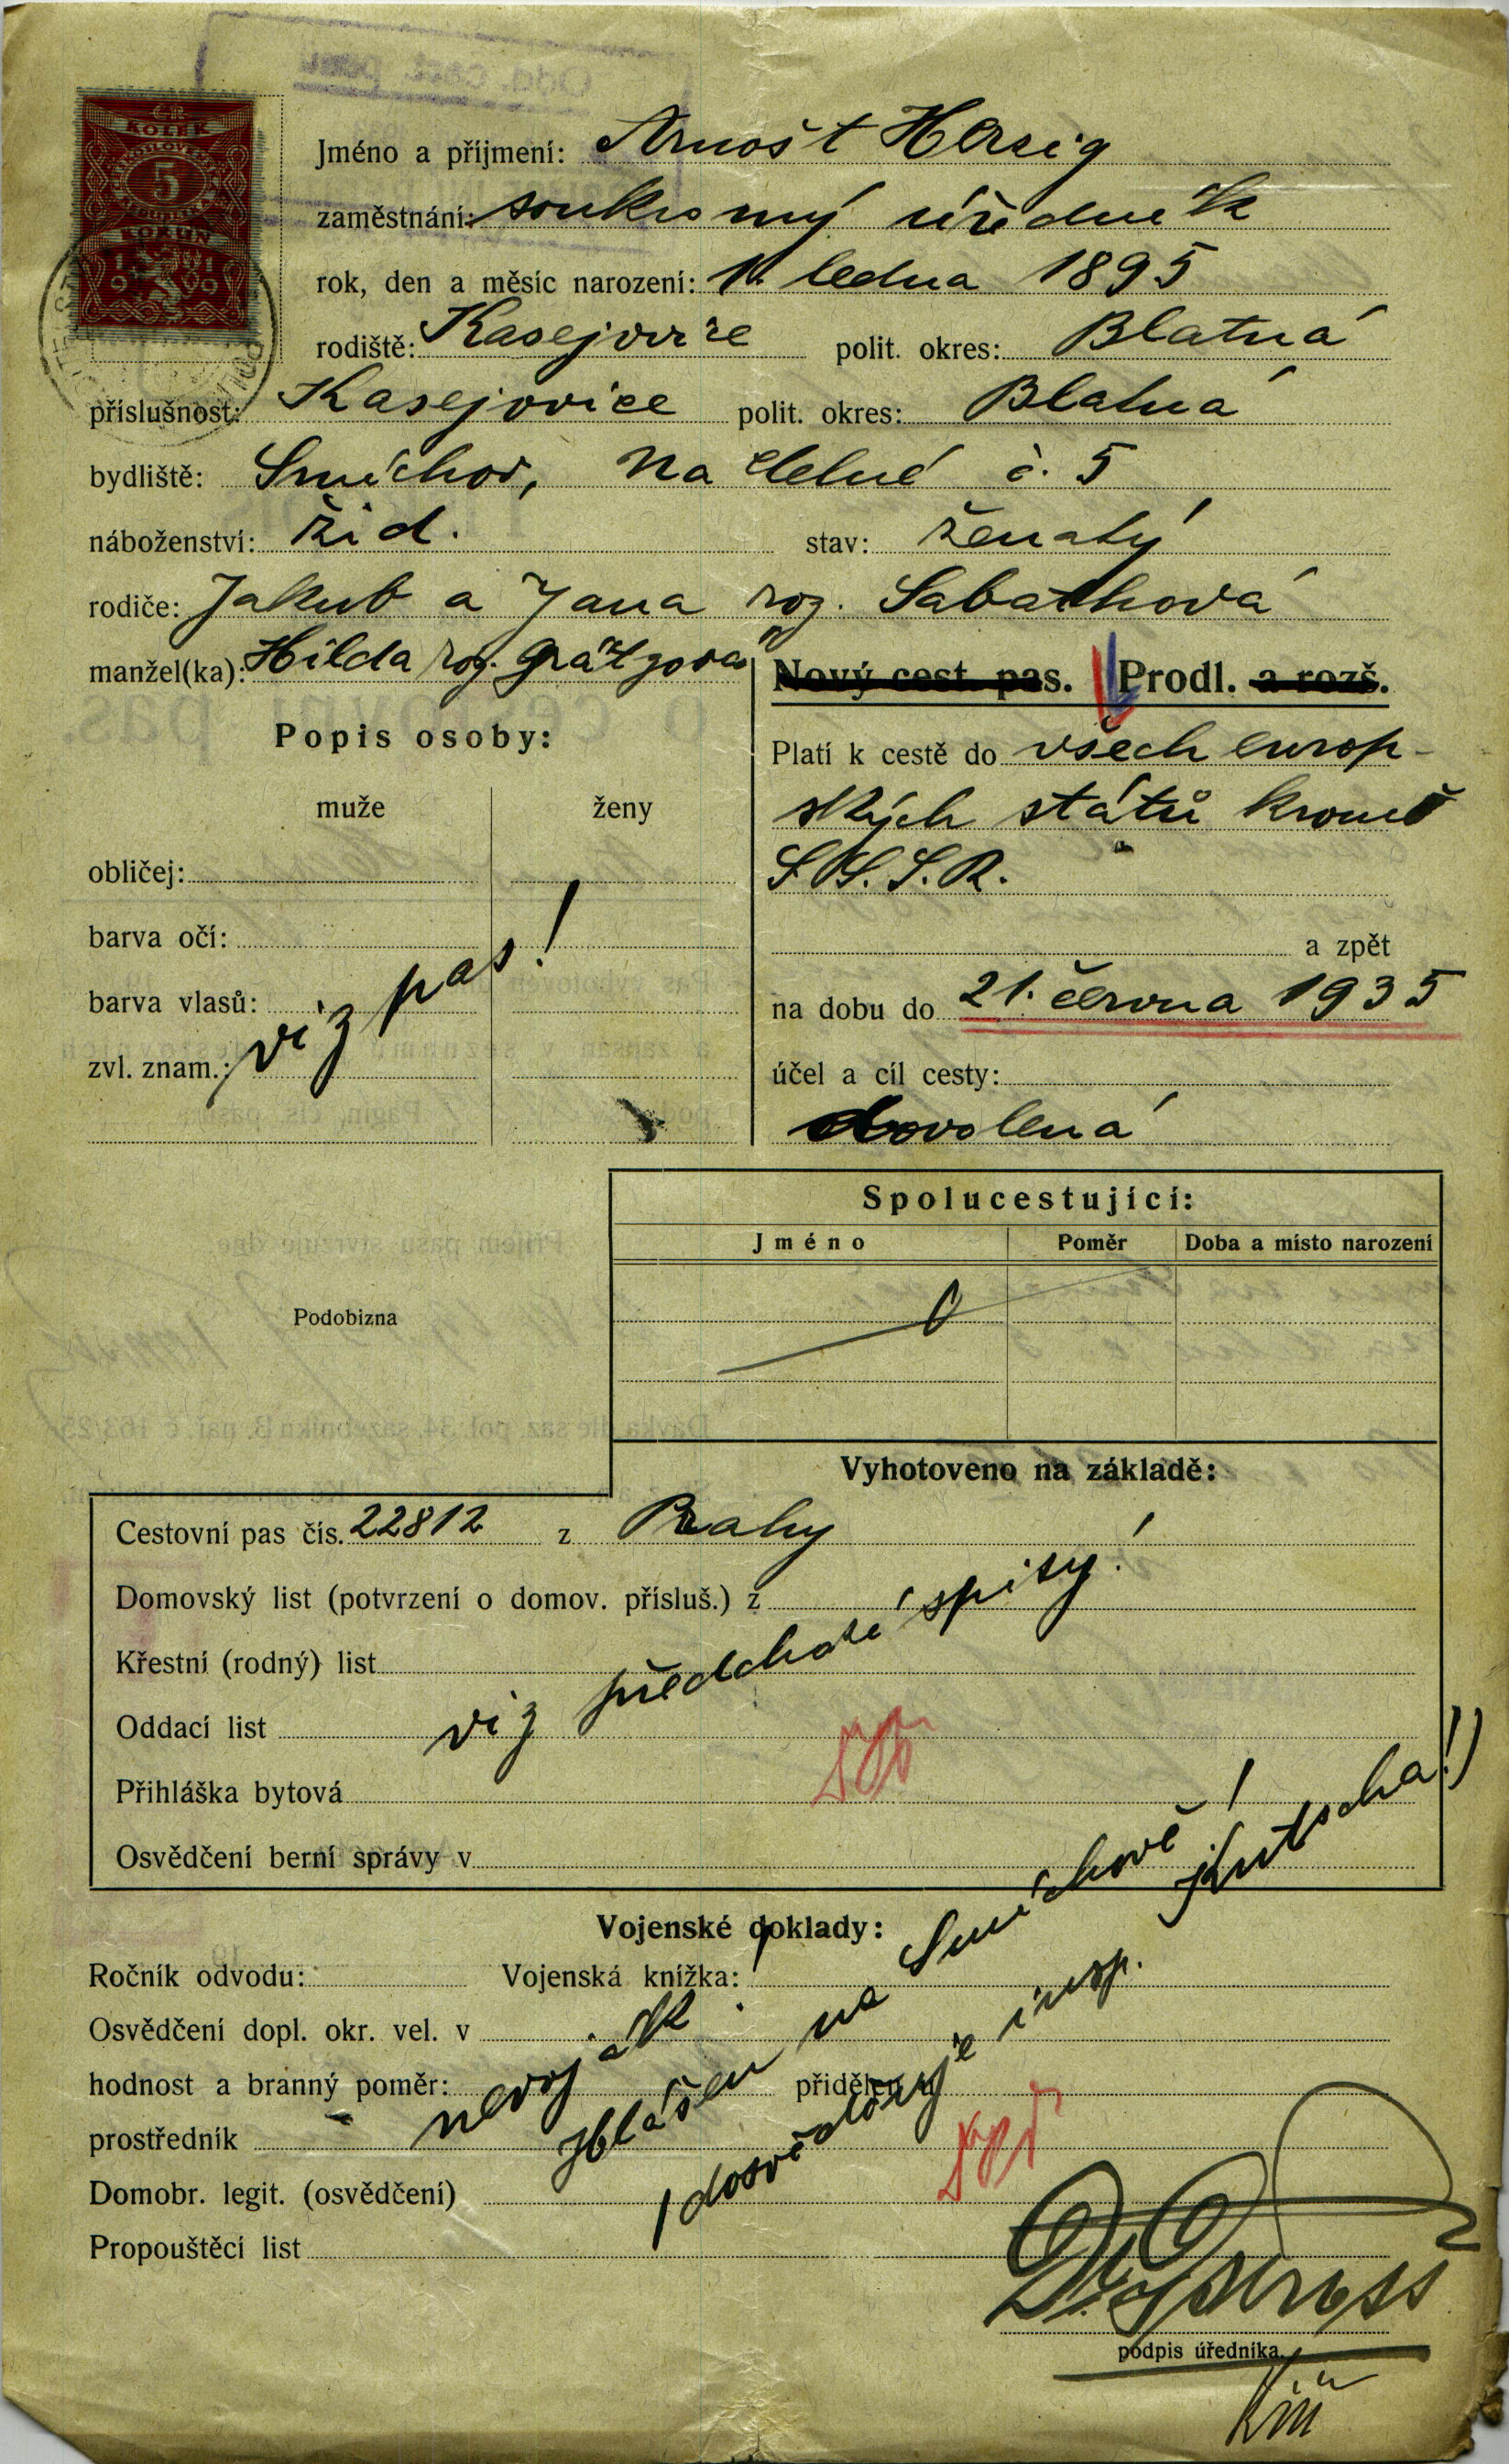 ČR
KOLEK
5
KORUN
1919
Jméno a příjmení: Arnošt Herzig
zaměstnání: soukromý úředník
rok, den a měsíc narození: 1. ledna 1895
rodiště: Kasejovice polit. okres: Blatná
příslušnost: Kasejovice polit. okres: Blatná
bydliště: Smíchov, Na Celné č. 5
náboženství: žid. stav: ženatý
rodiče: Jakub a Jana roz. Sabathová
manžel(ka): Hilda roz. Grätzova
Nový cest. pas. Prodl. a rozš.
Popis osoby:
muže ženy
obličej:
barva očí:
barva vlasů:
zvl. znam.:
viz pas!
Platí k cestě do všech evrop-
ských států kromě
S.S.S.R.
a zpět
na dobu do 21. června 1935
účel a cíl cesty:
dovolená
Podobizna
Spolucestující:
Jméno Poměr Doba a místo narození
0
Vyhotoveno na základě:
Cestovní pas čís. 22812 z Prahy
Domovský list (potvrzení o domov. přísluš.) z
Křestní (rodný) list
Oddací list
viz předchozí spisy!
Přihláška bytová
Osvědčení berní správy v
Vojenské doklady:
Ročník odvodu: Vojenská knížka:
Osvědčení dopl. okr. vel. v
hodnost a branný poměr: přidělen u
prostředník
Domobr. legit. (osvědčení)
Propouštěcí list
nevoják.
Hlášen na Smíchově!
(dosvědčuje insp.
podpis úředníka.